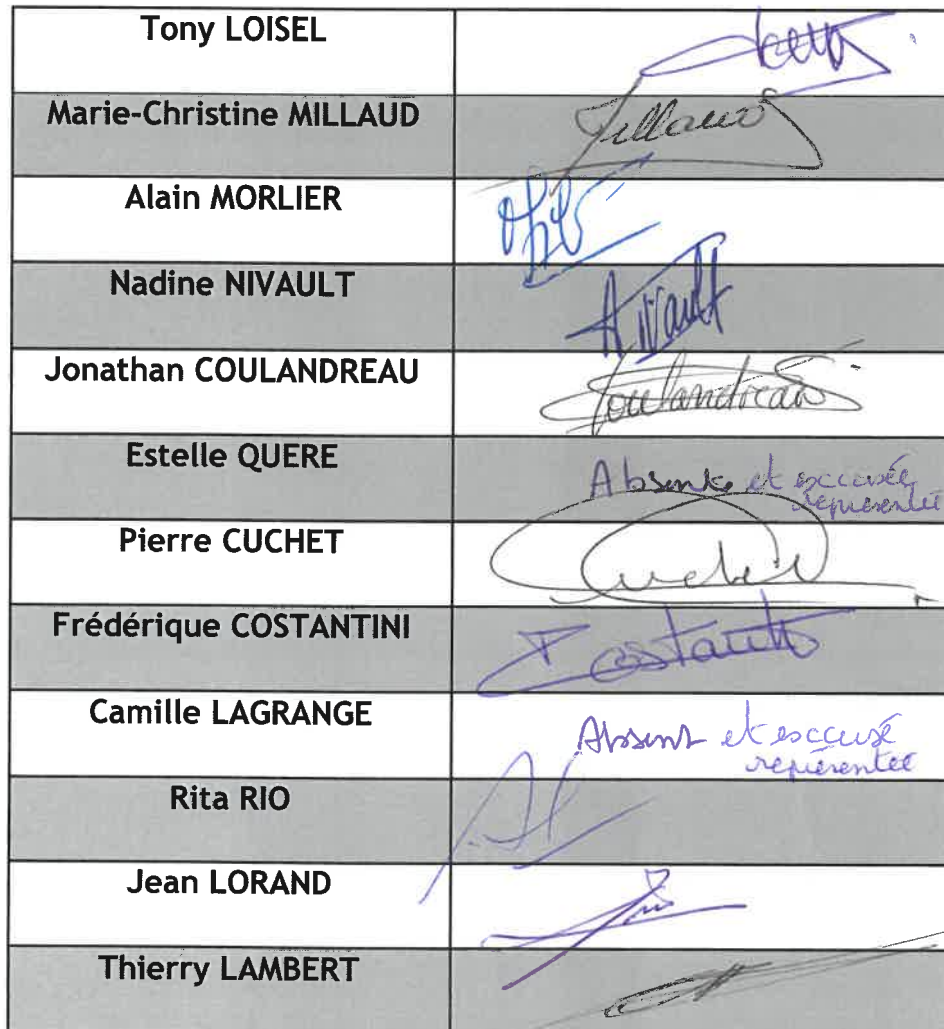 Tony LOISEL
Marie-Christine MILLAUD
Millaud
Alain MORLIER
Nadine NIVAULT
Nivault
Jonathan COULANDREAU
Coulandreau
Estelle QUERE
Absente et excusée
représentée
Pierre CUCHET
Cuchet
Frédérique COSTANTINI
Costantini
Camille LAGRANGE
Absent et excusé
représentée
Rita RIO
Jean LORAND
Thierry LAMBERT